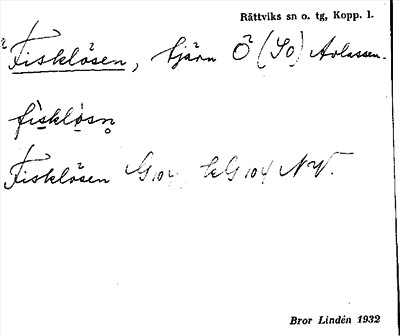 Rättviks sn o. tg, Kopp. l.
Fisklösen, tjärn Ö (So) Arlassen.
fisklösn
Fisklösen G102 KG 104 NV.
Bror Lindén 1932